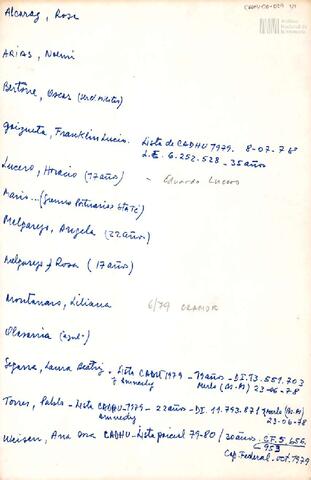 CADHU-DD-029 1/1
Archivo Nacional de la Memoria
Alcaraz, Rosa
ARIAS, Noemi
Bertone, Oscar (serv. militar)
Goizueta, Franklin Lucio. Lista de CADHU 1979. 8-07-76
L.E. 6.252.528 - 35 años
Lucero, Horacio (17 años) - Eduardo Lucero
Mario... (gremio Portuarios
Melgarejo, Angela (22 años)
Melgarejo, Rosa (17 años)
Montanaro, Liliana 6/79
Olasarria
Segarra, Laura Beatriz - Lista CADHU 1979 - 19 años - D.I. 13.551.703
y Amnesty Merlo (Bs.As) 23-06-78
Torres, Pablo - Lista CADHU - 1979 - 22 años - DI. 11.793.871 Merlo (Bs.As)
Amnesty 23-06-78
Weisen, Ana Rosa CADHU - Lista parcial 79-80 / 30 años. C.F. 5.656.
953
Cap. Federal. oct. 1979